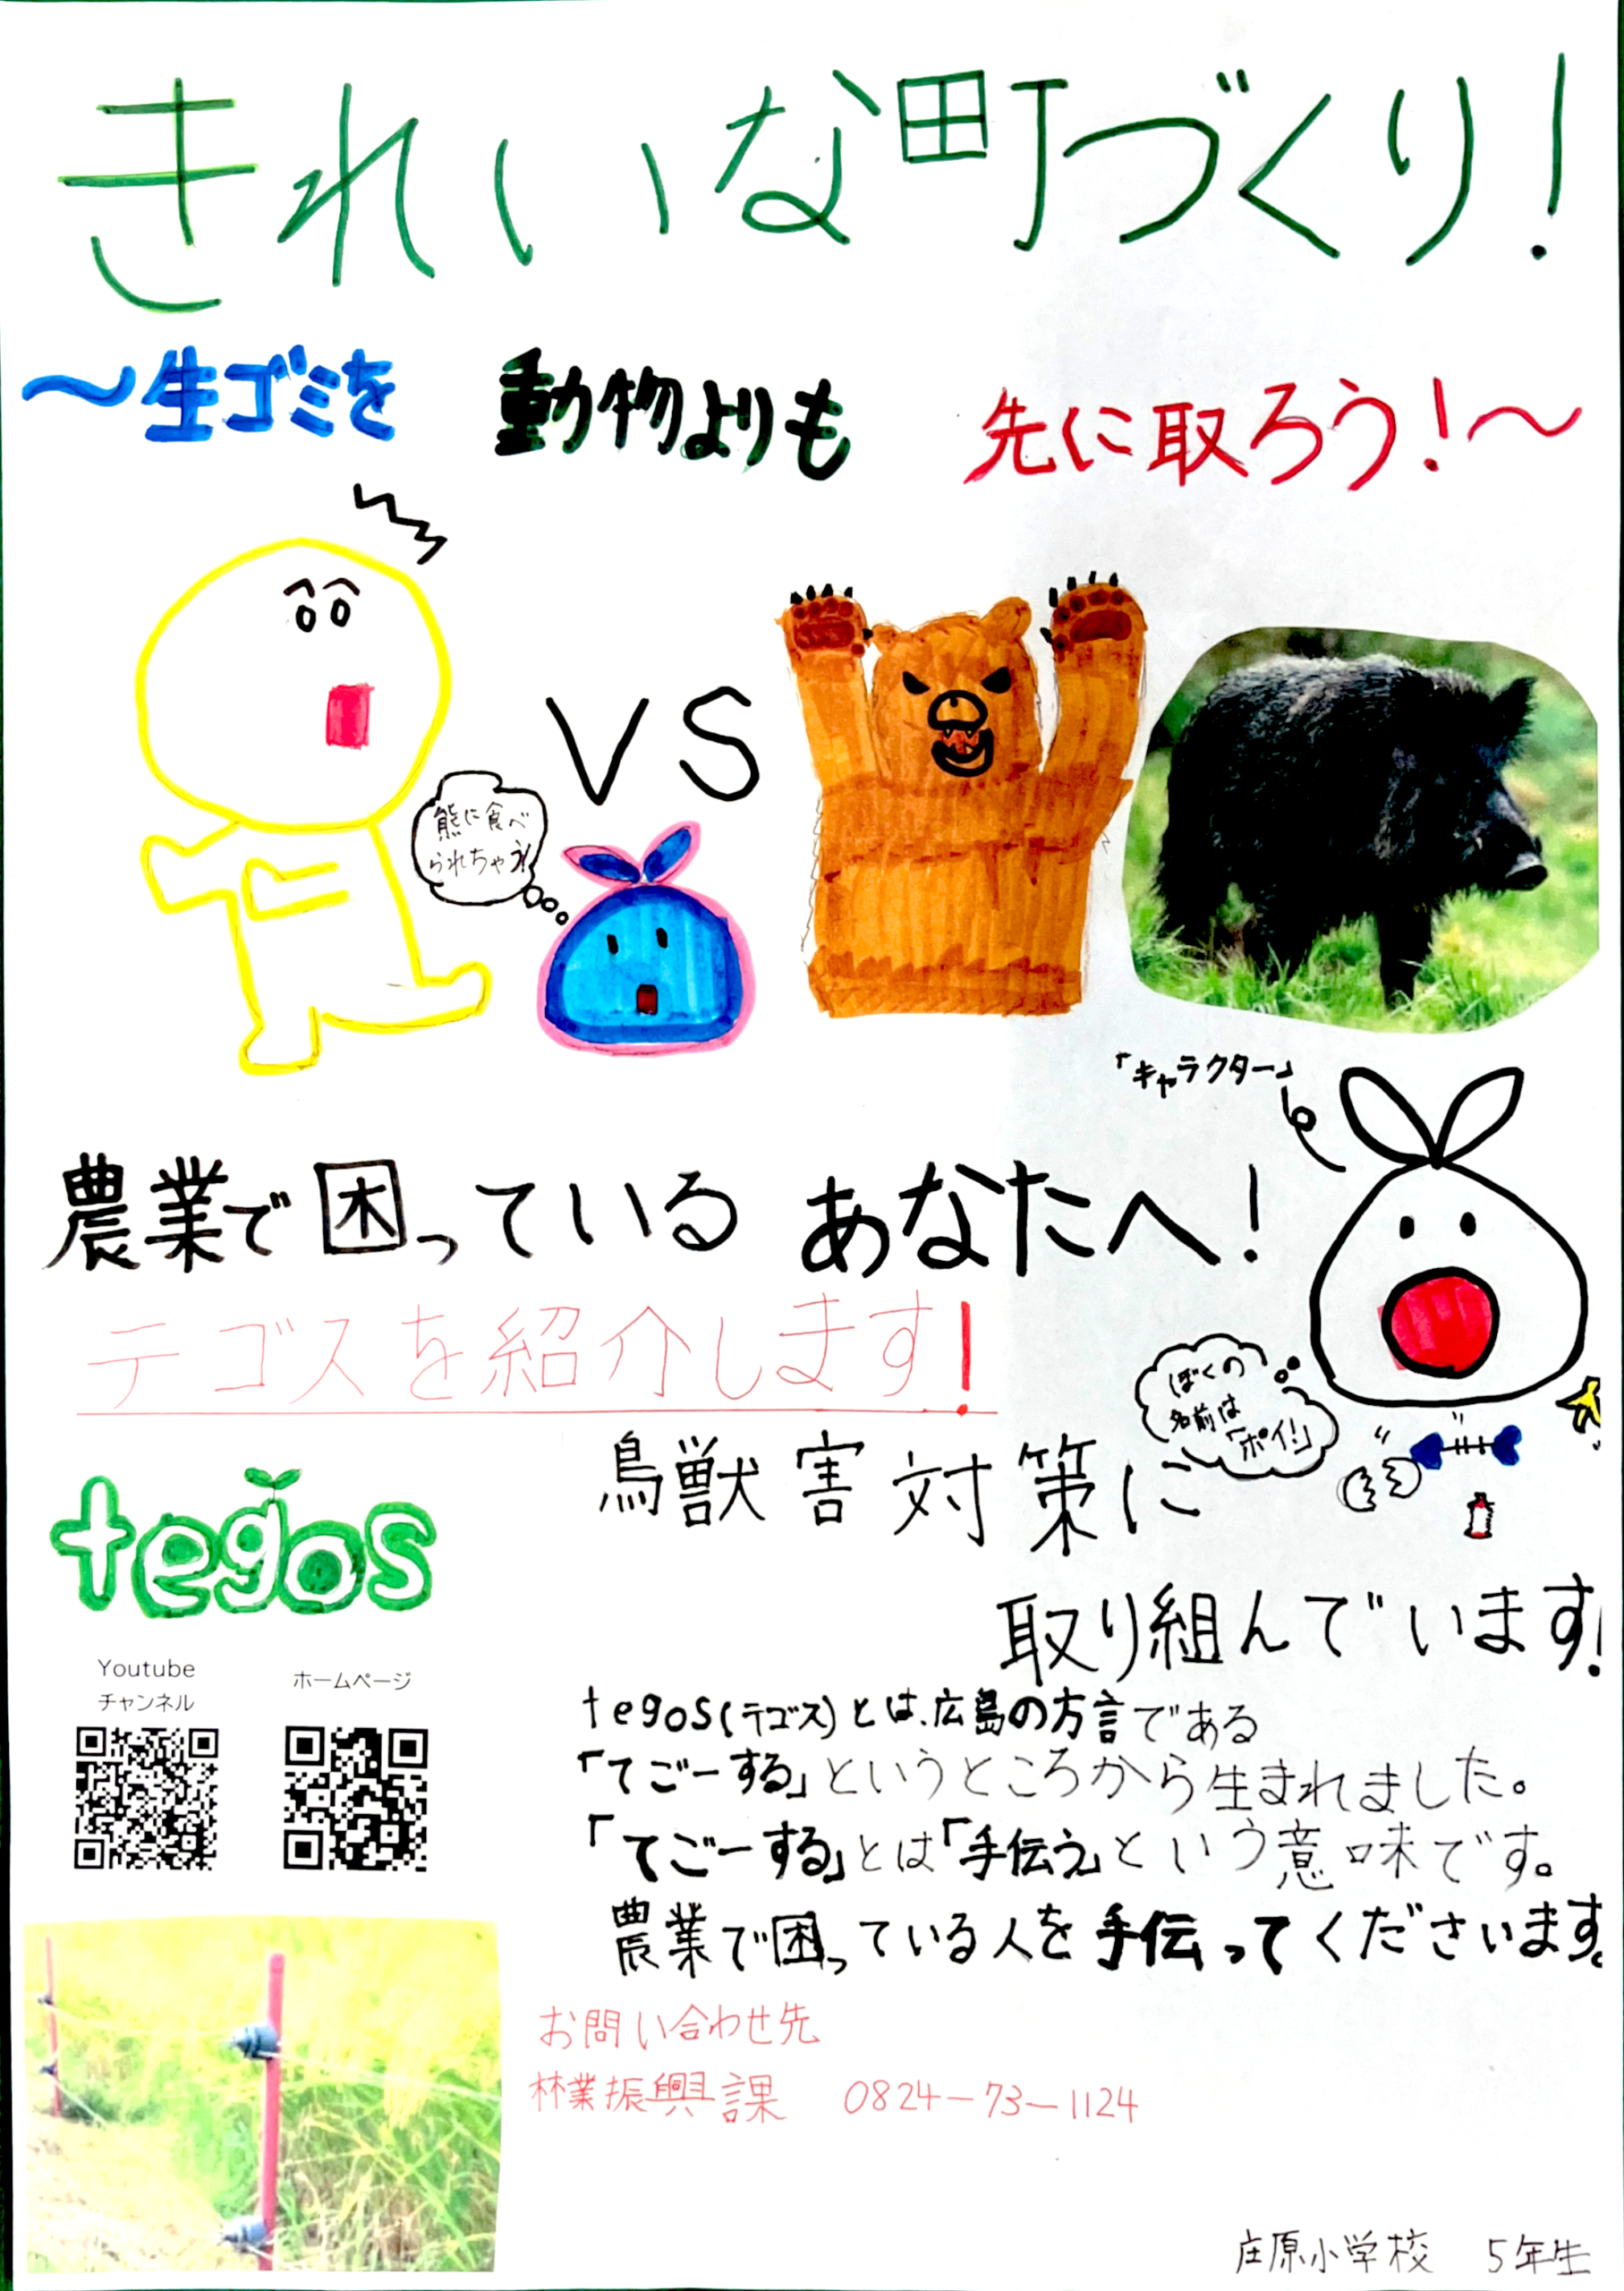 きれいな町づくり!
～生ゴミを 動物よりも 先に取ろう!～
VS
熊に食べ
られちゃう!
「キャラクター」
農業で困っている あなたへ!
テゴスを紹介します!
ぼくの
名前は
「ポイ!」
鳥獣害対策に
取り組んでいます!
tegos
Youtube
チャンネル
ホームページ
tegos(テゴス)とは、広島の方言である
「てごーする」というところから生まれました。
「てごーする」とは「手伝う」という意味です。
農業で困っている人を手伝ってくださいます。
お問い合わせ先
林業振興課 0824-73-1124
庄原小学校 5年生